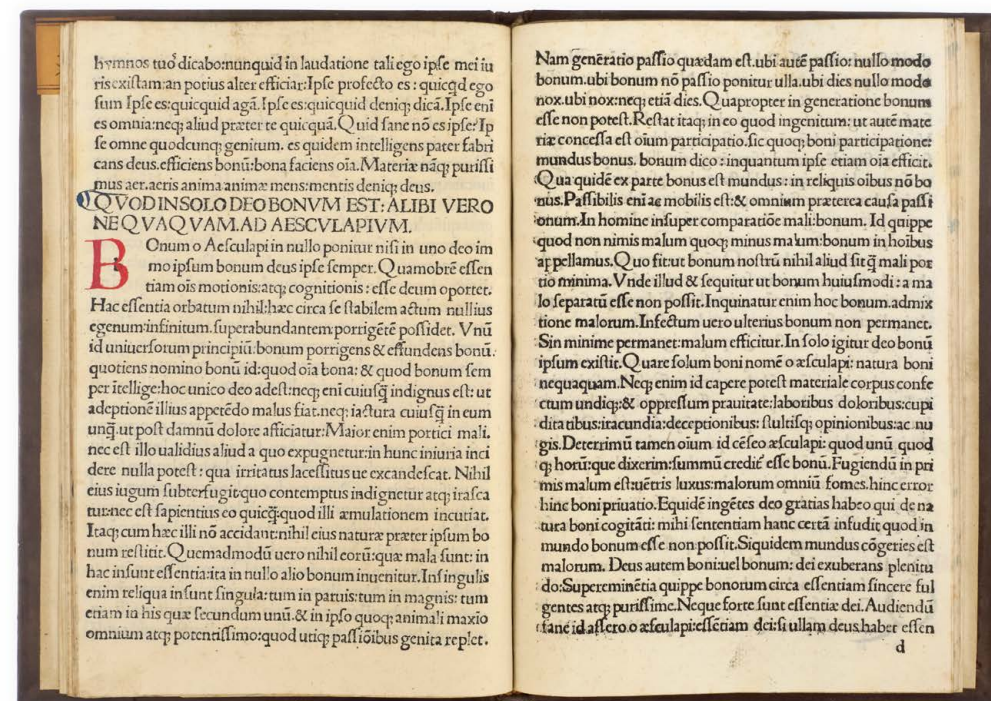 hymnos tuos̄ dicabo:nunquid in laudatione tali ego ipſe mei iu
ris exiſtam:an potius alter efficiar:Ipſe profecto es : quicq̄d ego
ſum Ipſe es:quicquid agā. Ipſe es:quicquid deniq; dicā.Ipſe enī
es omnia:neq; aliud præter te quicquā.Quid ſane nō es ipſe:Ip
ſe omne quodcunq; genitum. es quidem intelligens pater fabri
cans deus.efficiens bonū:bona faciens oīa.Materiæ nāq; puriſſi
mus aer.aeris anima animæ mens:mentis deniq; deus.
QVOD IN SOLO DEO BONVM EST: ALIBI VERO
NEQVAQVAM.AD AESCVLAPIVM.
BOnum o Aeſculapi in nullo ponitur niſi in uno deo im
mo ipſum bonum deus ipſe ſemper.Quamobrē eſſen
tiam oīs motionis:atq; cognitionis : eſſe deum oportet.
Hac eſſentia orbatum nihil:hæc circa ſe ſtabilem actum nullius
egenum:infinitum.ſuperabundantem:porrigētē poſſidet. Vnū
id uniuerſorum principiū:bonum porrigens & effundens bonū.
quotiens nomino bonū id:quod oīa bona: & quod bonum ſem
per ītellige:hoc unico deo adeſt:neq; enī cuiuſq̄ indignus eſt: ut
adeptione illius appetēdo malus fiat.neq; iactura cuiuſq̄ in eum
unq̄.ut poſt damnū dolore afficiatur:Maior enim portici mali.
nec eſt illo ualidius aliud a quo expugnetur:in hunc iniuria inci
dere nulla poteſt : qua irritatus laceſſitus ue excandeſcat. Nihil
eius iugum ſubterfugit:quo contemptus indignetur atq; iraſca
tur:nec eſt ſapientius eo quicq̄:quod illi æmulationem incutiat.
Itaq; cum hæc illi nō accidant:nihil eius naturæ præter ipſum bo
num reſtitit.Quemadmodū uero nihil eorū:quæ mala ſunt: in
hac inſunt eſſentia:ita in nullo alio bonum inuenitur.In ſingulis
enim reliqua inſunt ſingula: tum in paruis:tum in magnis: tum
etiam in his quæ ſecundum unū.& in ipſo quoq; animali maxio
omnium atq; potentiſſimo:quod utiq; paſſiōibus genita replet.
Nam generatio paſſio quædam eſt.ubi autē paſſio: nullo modo
bonum.ubi bonum nō paſſio ponitur ulla.ubi dies nullo modo
nox.ubi nox:neq; etiā dies.Quapropter in generatione bonum
eſſe non poteſt.Reſtat itaq; in eo quod ingenitum: ut autē mate
riæ conceſſa eſt oīum participatio.ſic quoq; boni participatione:
mundus bonus. bonum dico : inquantum ipſe etiam oīa efficit.
Qua quidē ex parte bonus eſt mundus : in reliquis oībus nō bo
nus.Paſſibilis enī ac mobilis eſt:& omnium præterea cauſa paſſi
onum.In homine inſuper comparatiōe mali:bonum. Id quippe
quod non nimis malum quoq; minus malum:bonum in hoībus
appellamus.Quo fit:ut bonum noſtrū nihil aliud ſit q̄ mali por
tio minima.Vnde illud & ſequitur ut bonum huiuſmodi : a ma
lo ſeparatū eſſe non poſſit.Inquinatur enim hoc bonum.admix
tione malorum.Infectum uero ulterius bonum non permanet.
Sin minime permanet:malum efficitur.In ſolo igitur deo bonū
ipſum exiſtit.Quare ſolum boni nomē o æſculapi: natura boni
nequaquam.Neq; enim id capere poteſt materiale corpus confe
ctum undiq;:& oppreſſum prauitate:laboribus doloribus:cupi
ditatibus:iracundia:deceptionibus: ſtultiſq; opinionibus:ac nu
gis.Deterrimū tamen oīum id cēſeo æſculapi: quod unū quod
q; horū:que dixerim:ſummū credit̄ eſſe bonū.Fugiendū in pri
mis malum eſt:uētris luxus:malorum omniū fomes.hinc error
hinc boni priuatio.Equidē ingētes deo gratias habeo qui de na
tura boni cogitāti: mihi ſententiam hanc certā infudit quod in
mundo bonum eſſe non poſſit.Siquidem mundus cōgeries eſt
malorum. Deus autem boni:uel bonum: dei exuberans plenitu
do:Supereminētia quippe bonorum circa eſſentiam ſincere ful
gentes atq; puriſſime.Neque forte ſunt eſſentiæ dei.Audiendū
ſane id aſſero.o æſculapi:eſſētiam dei:ſi ullam deus habet eſſen
d